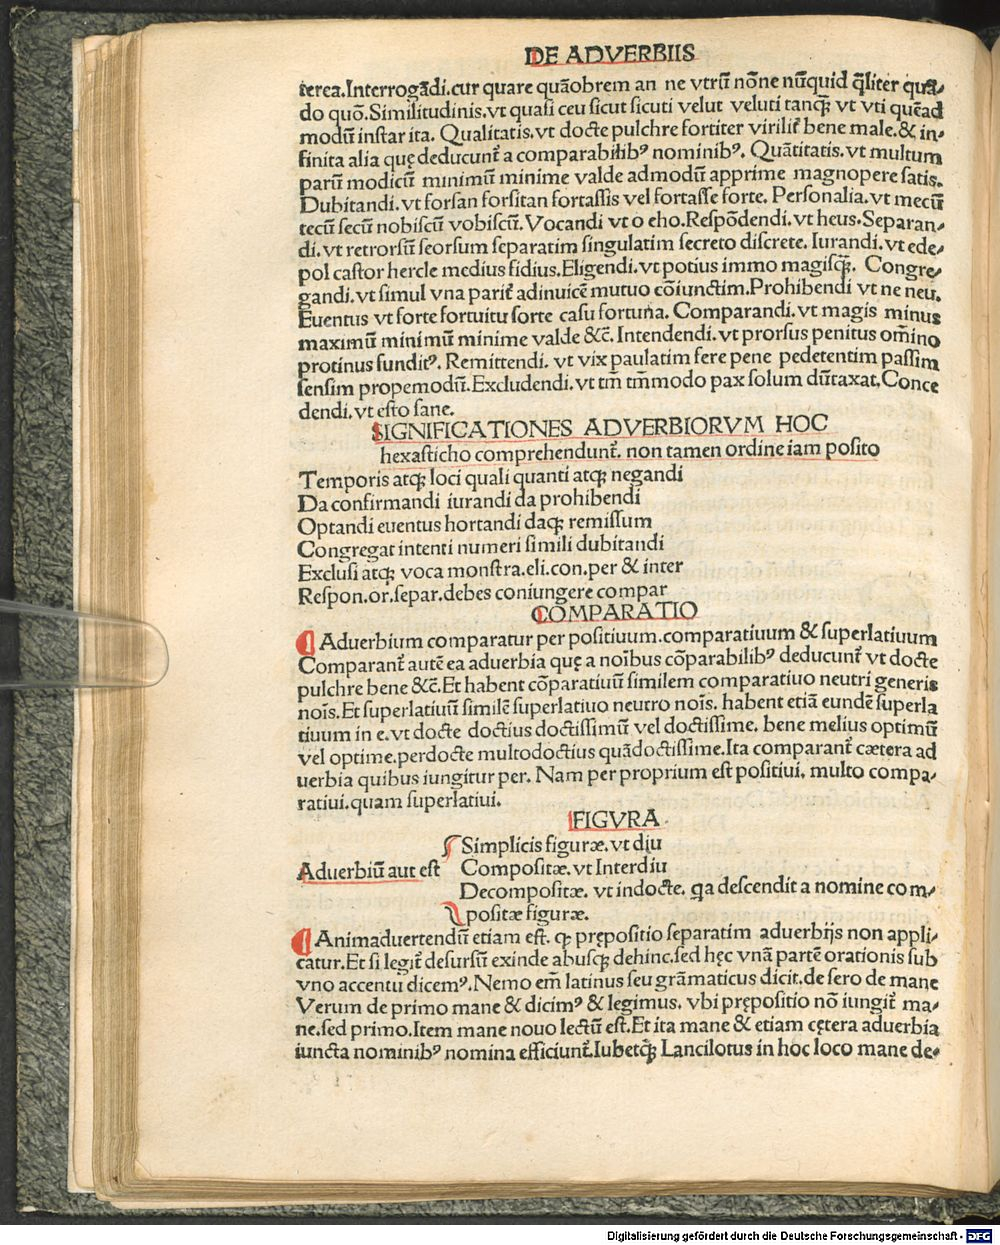 DE ADVERBIIS
terea.Interrogādi.cur quare quāobrem an ne vtrū nōne nūquid q̄liter quā⸗
do quō.Similitudinis.vt quasi ceu sicut sicuti velut veluti tanq̄ꝫ vt vti quēad
modū instar ita. Qualitatis.vt docte pulchre fortiter virilit̄ bene male.& in⸗
finita alia quę deducunt̄ a comparabilibꝰ nominibꝰ. Quātitatis.vt multum
parū modicū minimū minime valde admodū apprime magnopere satis.
Dubitandi.vt forsan forsitan fortassis vel fortasse forte. Personalia.vt mecū
tecū secū nobiscū vobiscū.Vocandi vt o eho.Respōdendi.vt heus.Separan⸗
di.vt retrorsū seorsum separatim singulatim secreto discrete. Iurandi.vt ede⸗
pol castor hercle medius fidius.Eligendi.vt potius immo magisq̄ꝫ. Congre⸗
gandi.vt simul vna parit̄ adinuicē mutuo cōiunctim.Prohibendi vt ne neu.
Euentus vt forte fortuitu sorte casu fortuna. Comparandi.vt magis minus
maximū minimū minime valde &c̄. Intendendi.vt prorsus penitus om̄ino
protinus funditꝰ. Remittendi. vt vix paulatim fere pene pedetentim passim
sensim propemodū.Excludendi.vt tm̄ tm̄modo pax solum dūtaxat.Conce
dendi.vt esto sane.
SIGNIFICATIONES ADVERBIORVM HOC
hexasticho comprehendunt̄. non tamen ordine iam posito
Temporis atqꝫ loci quali quanti atqꝫ negandi
Da confirmandi iurandi da prohibendi
Optandi euentus hortandi daqꝫ remissum
Congregat intenti numeri simili dubitandi
Exclusi atqꝫ voca monstra.eli.con.per & inter
Respon.or.separ.debes coniungere compar
COMPARATIO
Aduerbium comparatur per positiuum.comparatiuum & superlatiuum
Comparant̄ autē ea aduerbia quę a noībus cōparabilibꝰ deducunt̄ vt docte
pulchre bene &c̄.Et habent cōparatiuū similem comparatiuo neutri generis
noīs.Et superlatiuū similē superlatiuo neutro noīs. habent etiā eundē superla
tiuum in e.vt docte doctius doctissimū vel doctissime. bene melius optimū
vel optime.perdocte multodoctius quādoctissime.Ita comparant̄ cætera ad
uerbia quibus iungitur per. Nam per proprium est positiui. multo compa⸗
ratiui.quam superlatiui.
FIGVRA.
Simplicis figuræ.vt diu
Aduerbiū aut est Compositæ. vt Interdiu
Decompositæ. vt indocte. qa descendit a nomine com⸗
positæ figuræ.
Animaduertendū etiam est. qꝫ prępositio separatim aduerbijs non appli⸗
catur.Et si legit̄ desursū exinde abusqꝫ dehinc.sed hęc vnā partē orationis sub
vno accentu dicemꝰ.Nemo em̄ latinus seu grāmaticus dicit.de sero de mane
Verum de primo mane & dicimꝰ & legimus. vbi prępositio nō iungit̄ ma⸗
ne.sed primo.Item mane nouo lectū est.Et ita mane & etiam cętera aduerbia
iuncta nominibꝰ nomina efficiunt̄.Iubetq̄ꝫ Lancilotus in hoc loco mane de⸗
Digitalisierung gefördert durch die Deutsche Forschungsgemeinschaft - DFG